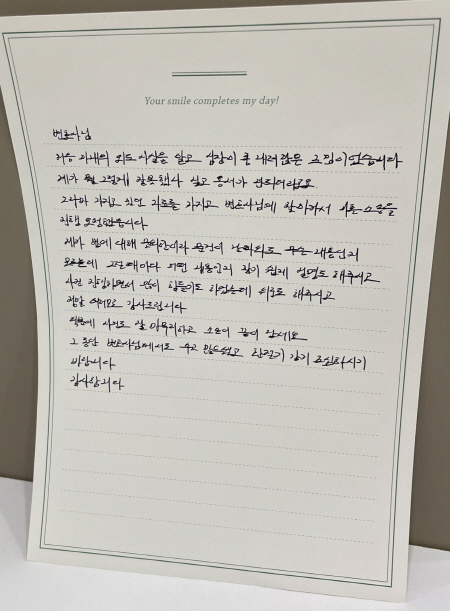 Your smile completes my day!
변호사님
처음 아내의 외도 사실을 알고 심장이 쿵 내려앉은 느낌이었습니다
제가 뭘 그렇게 잘못했나 싶고 용서가 안되더라고요
그나마 가지고 있던 자료를 가지고 변호사님에 찾아가서 이혼 소송을
진행 요청했습니다
제가 법에 대해 무뇌한이라 용건이 날라와도 무슨 내용인지
모르는데 그럴때마다 어떤 내용인지 알기 쉽게 설명도 해주시고
사건 진행하면서 많이 힘들기도 하였는데 위로도 해주시고
정말 여러모로 감사드립니다
덕분에 사건도 잘 마무리하고 소송이 끝이 났네요
그 동안 변호사님께서도 수고 많으셨고 환절기 감기 조심하시기
바랍니다
감사합니다